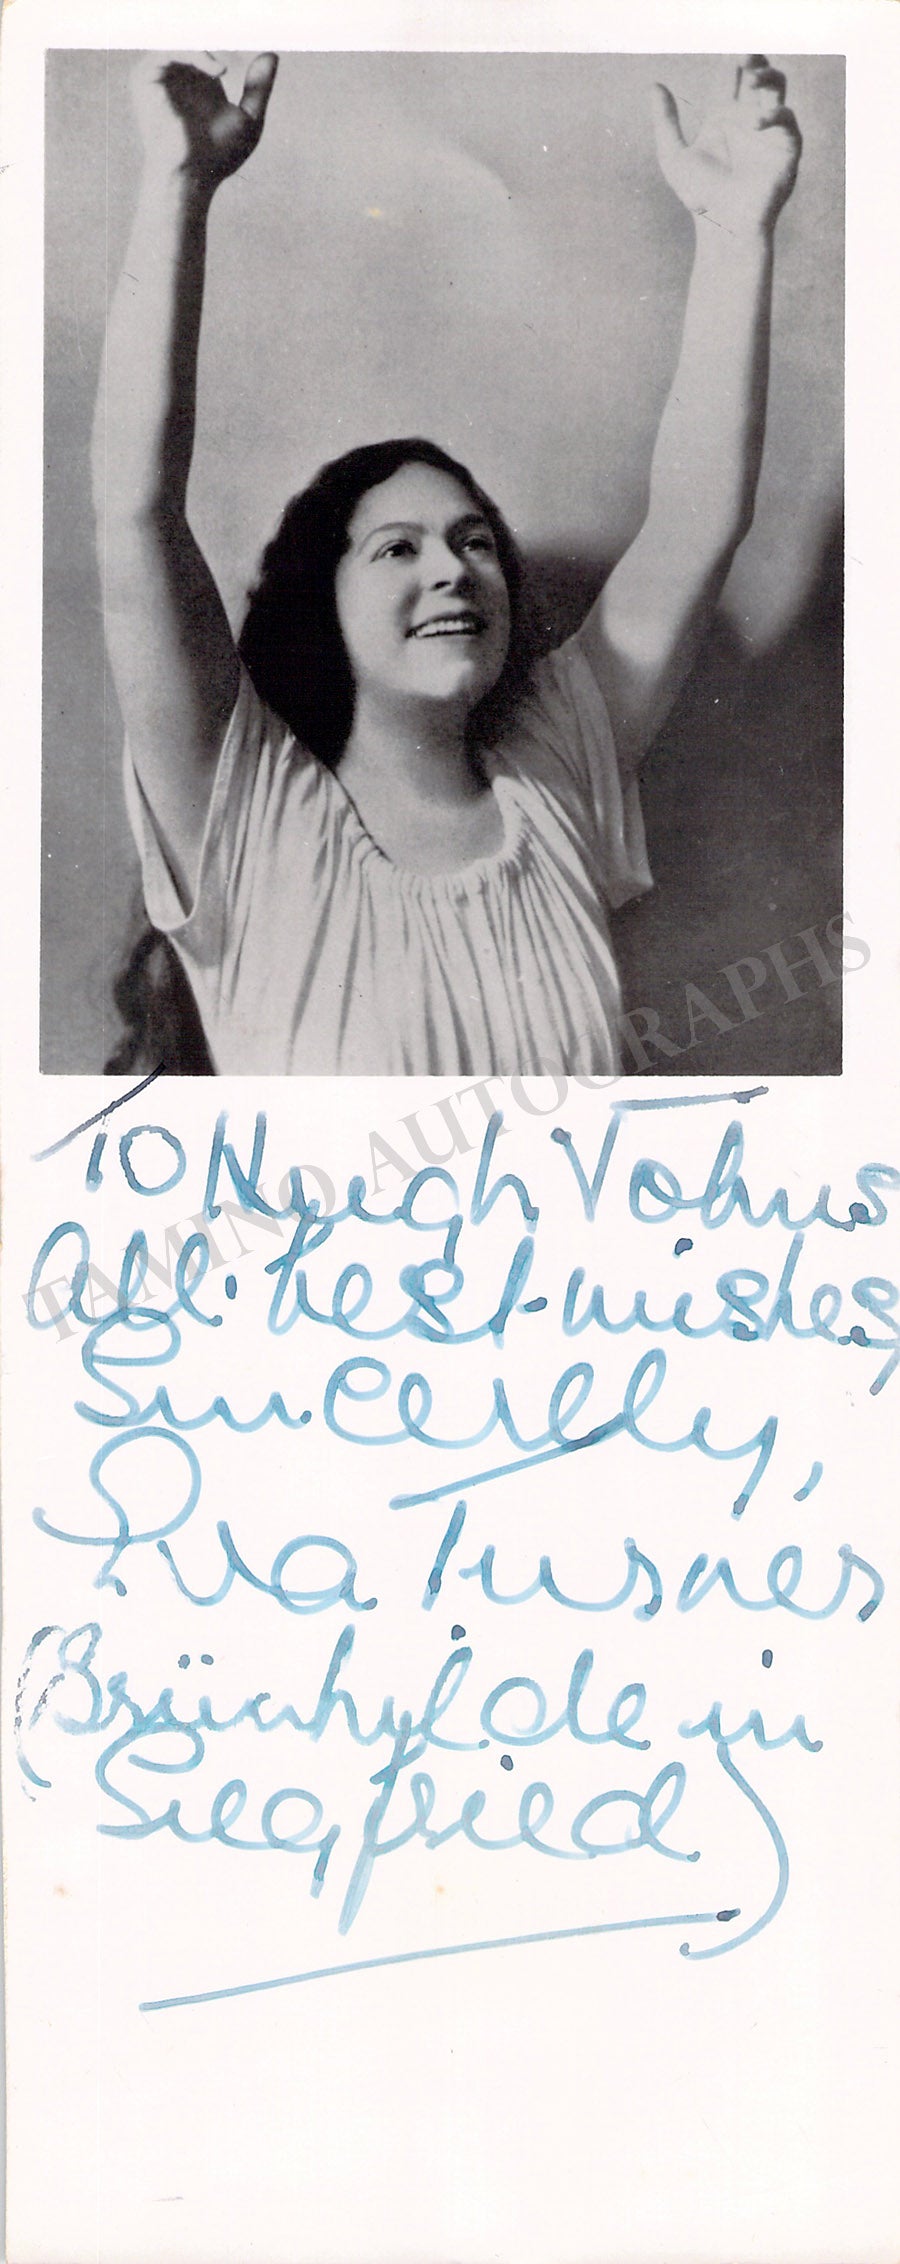 TAMINO AUTOGRAPHS
To Hugh Johns
All best wishes,
Sincerely,
Eva Turner
(Brünhylde in
Siegfried)